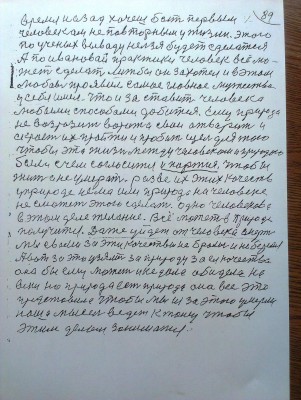 89
время назад хочет быть первым
человеком не повторимым у жизни. Этого
по ученых выводу нельзя будет сделать
А по ивановой практики человек всё мо-
жет сделать лишь бы он захотел и в этом
любовь проявил самое главное мужества
у себя имел. Что и заставит человека
любыми способами добится. Ему природа
не возразит ворота свои отварять и
скажет их пройти и пробыть цель для того
чтобы эта жизнь между человеком и природою
были с чем согласится у партия, чтобы
жить а не умерать. разве их этих качеств
у природе нема или природа на человека
не сможет этого сделать. одно человекова
в этом деле желание. Всё может в природе
получится. Затем уйдет от человека
мы своим за эти качества не брали и не будем
А вот за это взять за природу за её качества
она бы ему может и не дала обиделась на
веки но природа есть природа она все это
приготовила чтобы мы из за этого умерли
наша мысль ведет к тому чтобы
этим делом занимались.